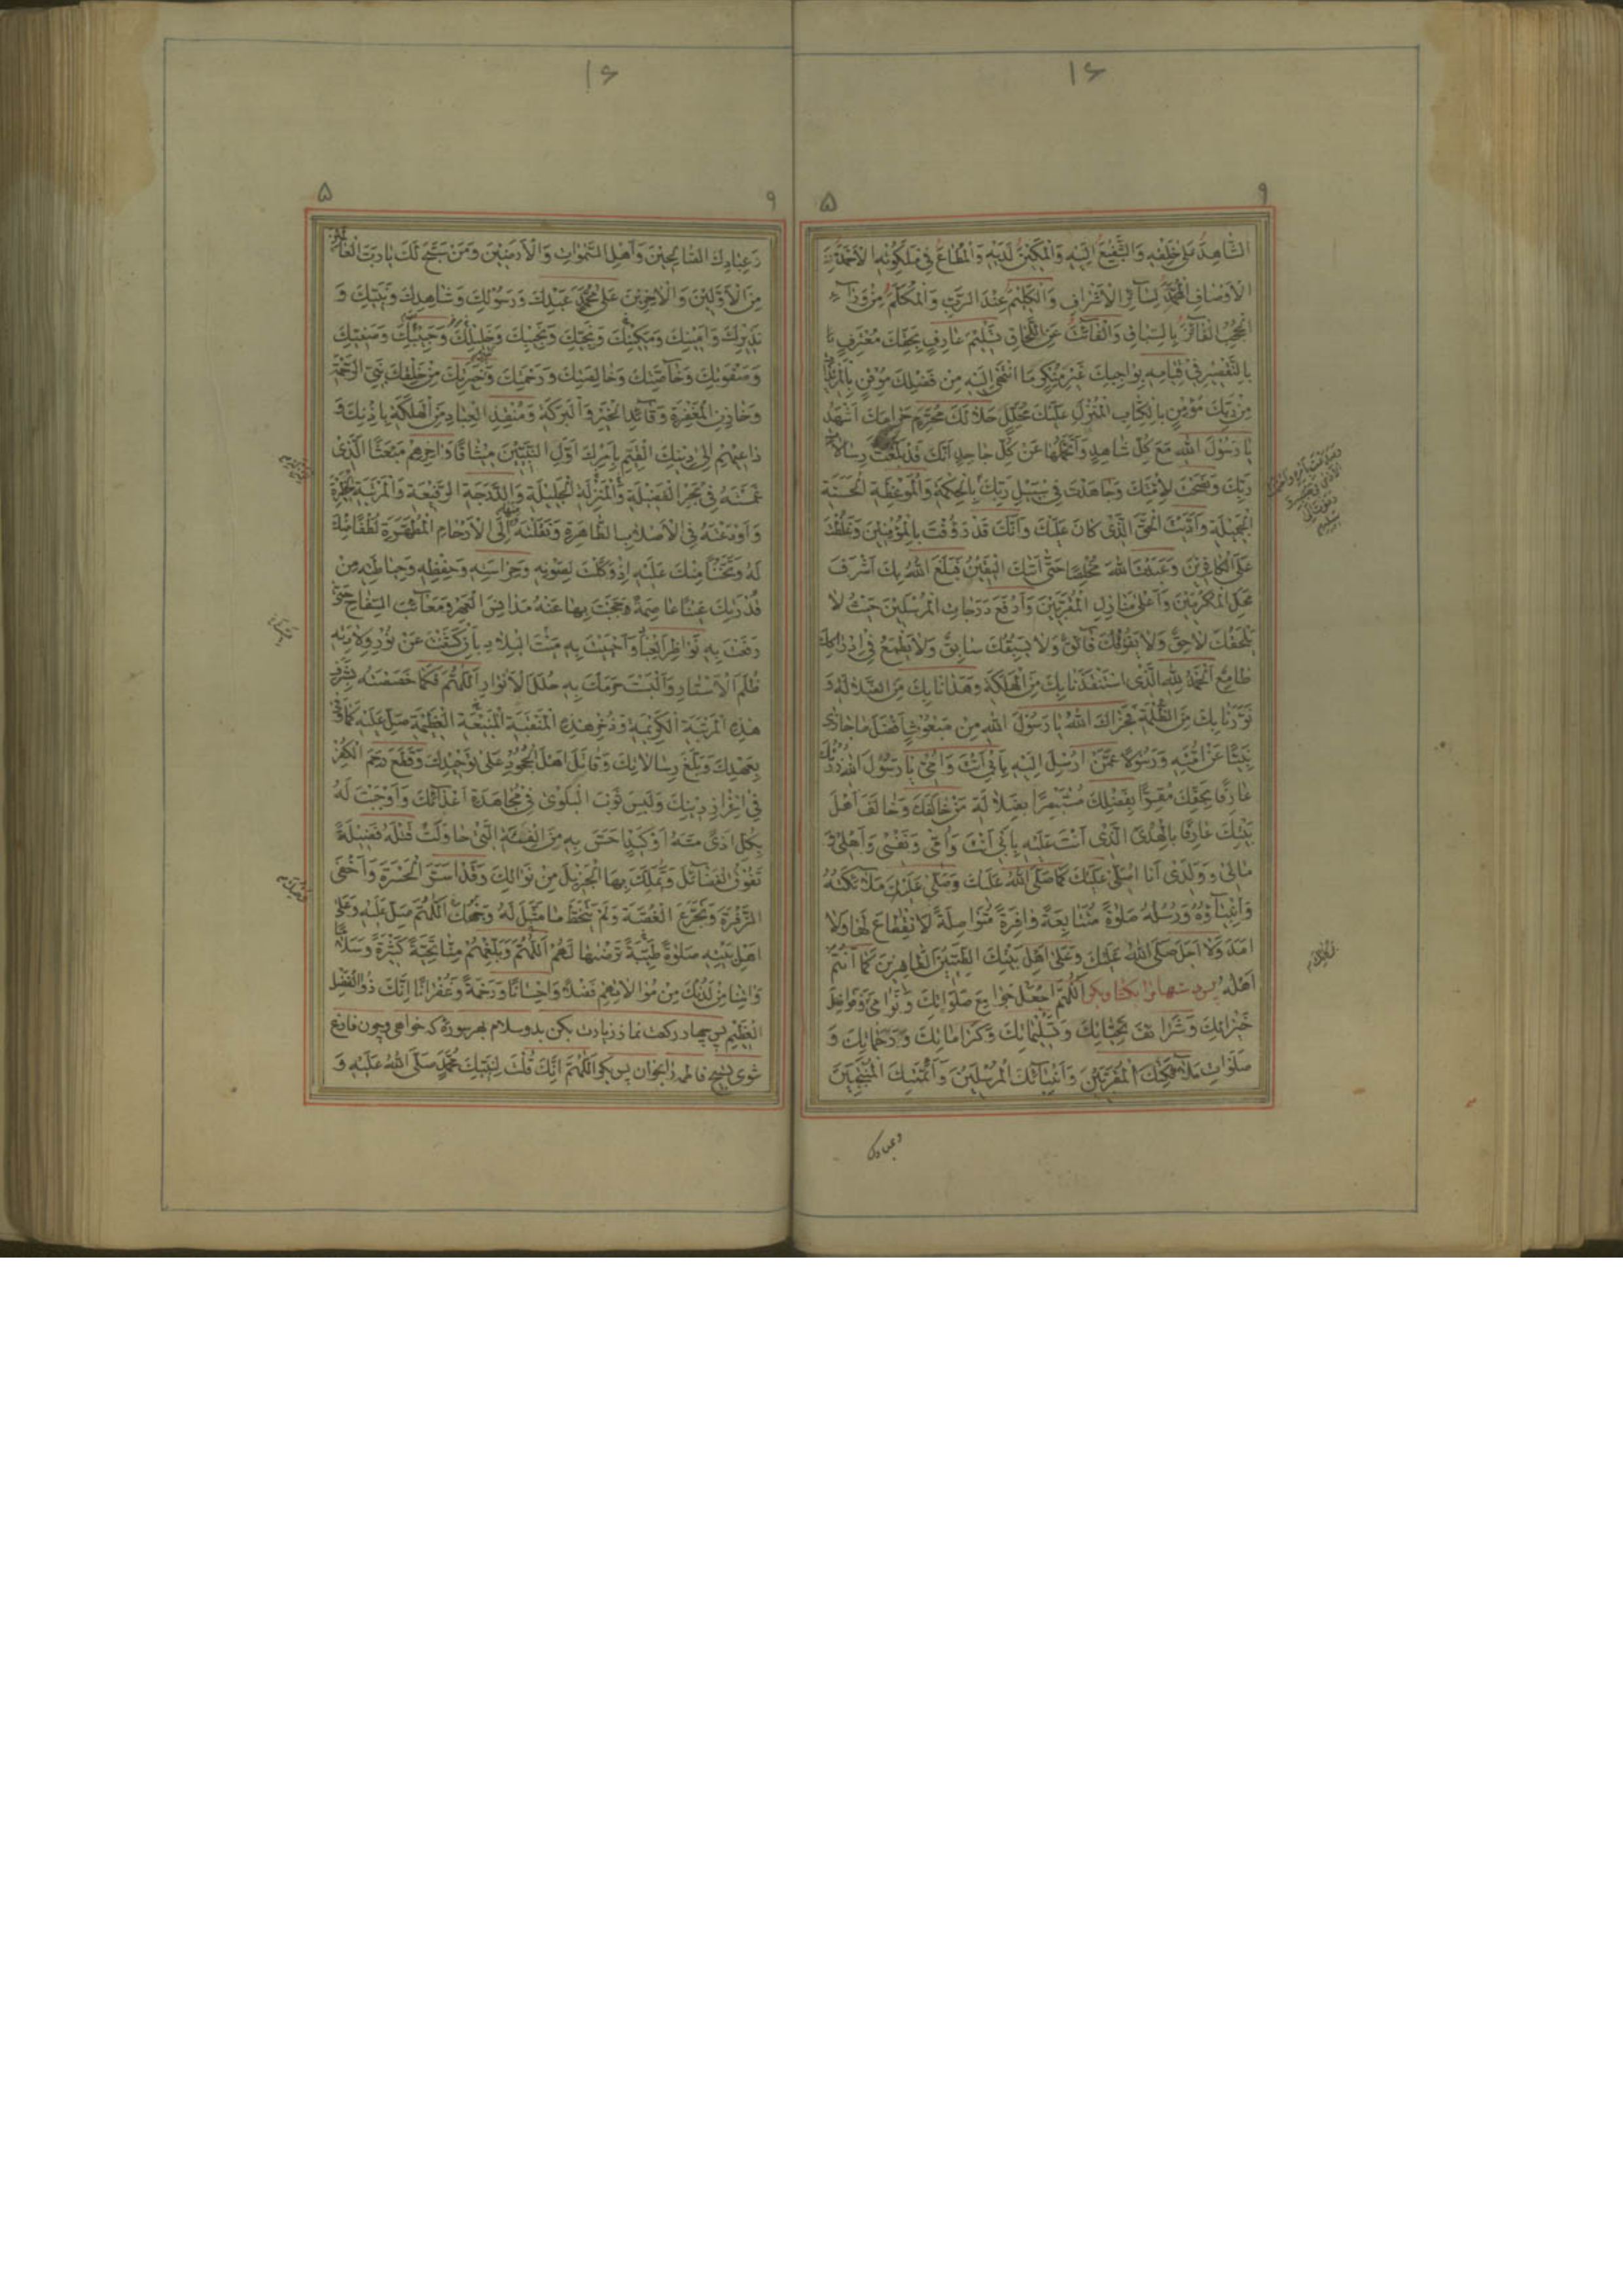 ۱۶
۹ ۵
الشَّاهِدَ عَلَىٰ خَلْقِهِ وَالشَّفِيعَ اِلَيْهِ وَالْمَكِينَ لَدَيْهِ وَالْمُطَاعَ فِي مَلَكُوتِهِ الْاَحْمَدَ مِنَ
الْاَوْصَافِ الْمُحَمَّدَ لِسَآئِرِ الْاَشْرَافِ وَالْكَرِيمَ عِنْدَ الرَّبِّ وَالْمُكَلَّمَ مِنْ وَرَآءِ
الْحُجُبِ الْفَآئِزَ بِالسِّبَاقِ وَالْفَآئِتَ عَنِ اللِّحَاقِ تَسْلِيمَ عَارِفٍ بِحَقِّكَ مُعْتَرِفٍ
بِالتَّقْصِيرِ فِي قِيَامِهِ بِوَاجِبِكَ غَيْرِ مُنْكِرٍ مَا انْتَهَىٰ اِلَيْهِ مِنْ فَضْلِكَ مُوقِنٍ بِالْمَزِيدَاتِ
مِنْ رَبِّكَ مُؤْمِنٍ بِالْكِتَابِ الْمُنْزَلِ عَلَيْكَ مُحَلِّلٍ حَلَالَكَ مُحَرِّمٍ حَرَامَكَ اَشْهَدُ
يَا رَسُولَ اللهِ مَعَ كُلِّ شَاهِدٍ وَاَتَحَمَّلُهَا عَنْ كُلِّ جَاحِدٍ اَنَّكَ قَدْ بَلَّغْتَ رِسَالَاتِ
رَبِّكَ وَنَصَحْتَ لِاُمَّتِكَ وَجَاهَدْتَ فِي سَبِيلِ رَبِّكَ بِالْحِكْمَةِ وَالْمَوْعِظَةِ الْحَسَنَةِ
الْجَمِيلَةِ وَاَدَّيْتَ الْحَقَّ الَّذِي كَانَ عَلَيْكَ وَاَنَّكَ قَدْ رَؤُفْتَ بِالْمُؤْمِنِينَ وَغَلُظْتَ
عَلَى الْكَافِرِينَ وَعَبَدْتَ اللهَ مُخْلِصًا حَتَّىٰ اَتٰكَ الْيَقِينُ فَبَلَغَ اللهُ بِكَ اَشْرَفَ
مَحَلِّ الْمُكَرَّمِينَ وَاَعْلَىٰ مَنَازِلِ الْمُقَرَّبِينَ وَاَرْفَعَ دَرَجَاتِ الْمُرْسَلِينَ حَيْثُ لَا
يَلْحَقُكَ لَاحِقٌ وَلَا يَفُوقُكَ فَآئِقٌ وَلَا يَسْبِقُكَ سَابِقٌ وَلَا يَطْمَعُ فِي اِدْرَاكِكَ
طَامِعٌ اَلْحَمْدُ لِلّٰهِ الَّذِي اسْتَنْقَذَنَا بِكَ مِنَ الْهَلَكَةِ وَهَدَانَا بِكَ مِنَ الضَّلَالَةِ وَ
نَوَّرَنَا بِكَ مِنَ الظُّلْمَةِ فَجَزَاكَ اللهُ يَا رَسُولَ اللهِ مِنْ مَبْعُوثٍ اَفْضَلَ مَا جَازَىٰ
نَبِيًّا عَنْ اُمَّتِهِ وَرَسُولًا عَمَّنْ اُرْسِلَ اِلَيْهِ بِاَبِي اَنْتَ وَاُمِّي يَا رَسُولَ اللهِ زُرْتُكَ
عَارِفًا بِحَقِّكَ مُقِرًّا بِفَضْلِكَ مُسْتَبْصِرًا بِضَلَالَةِ مَنْ خَالَفَكَ وَخَالَفَ اَهْلَ
بَيْتِكَ عَارِفًا بِالْهُدَى الَّذِي اَنْتَ عَلَيْهِ بِاَبِي اَنْتَ وَاُمِّي وَنَفْسِي وَاَهْلِي وَ
مَالِي وَوَلَدِي اَنَا اُصَلِّي عَلَيْكَ كَمَا صَلَّى اللهُ عَلَيْكَ وَصَلَّىٰ عَلَيْكَ مَلَآئِكَتُهُ
وَاَنْبِيَآؤُهُ وَرُسُلُهُ صَلٰوةً مُتَتَابِعَةً وَافِرَةً مُتَوَاصِلَةً لَا انْقِطَاعَ لَهَا وَلَا
اَمَدَ وَلَا اَجَلَ صَلَّى اللهُ عَلَيْكَ وَعَلَىٰ اَهْلِ بَيْتِكَ الطَّيِّبِينَ الطَّاهِرِينَ كَمَا اَنْتُمْ
اَهْلُهُ پس دستها را بکشا و بکو اَللّٰهُمَّ اجْعَلْ جَوَامِعَ صَلَوَاتِكَ وَنَوَامِيَ وَفَوَاضِلَ
خَيْرَاتِكَ وَشَرَآئِفَ تَحِيَّاتِكَ وَتَسْلِيمَاتِكَ وَكَرَامَاتِكَ وَرَحَمَاتِكَ وَ
صَلَوَاتِ مَلَآئِكَتِكَ الْمُقَرَّبِينَ وَاَنْبِيَآئِكَ الْمُرْسَلِينَ وَاَئِمَّتِكَ الْمُنْتَجَبِينَ
وعبادك
۱۶
۹ ۵
وَعِبَادِكَ الصَّالِحِينَ وَاَهْلِ السَّمٰوَاتِ وَالْاَرَضِينَ وَمَنْ سَبَّحَ لَكَ يَا رَبَّ الْعَالَمِينَ
مِنَ الْاَوَّلِينَ وَالْاٰخِرِينَ عَلَىٰ مُحَمَّدٍ عَبْدِكَ وَرَسُولِكَ وَشَاهِدِكَ وَنَبِيِّكَ وَ
نَذِيرِكَ وَاَمِينِكَ وَمَكِينِكَ وَنَجِيِّكَ وَنَجِيبِكَ وَخَلِيلِكَ وَحَبِيبِكَ وَصَفِيِّكَ
وَصَفْوَتِكَ وَخَآصَّتِكَ وَخَالِصَتِكَ وَرَحْمَتِكَ وَخَيْرِ خِيَرَتِكَ مِنْ خَلْقِكَ نَبِيِّ الرَّحْمَةِ
وَخَازِنِ الْمَغْفِرَةِ وَقَآئِدِ الْخَيْرِ وَالْبَرَكَةِ وَمُنْقِذِ الْعِبَادِ مِنَ الْهَلَكَةِ بِاِذْنِكَ وَ
دَاعِيهِمْ اِلَىٰ دِينِكَ الْقَيِّمِ بِاَمْرِكَ اَوَّلِ النَّبِيِّينَ مِيثَاقًا وَاٰخِرِهِمْ مَبْعَثًا الَّذِي
غَمَسْتَهُ فِي بَحْرِ الْفَضِيلَةِ وَالْمَنْزِلَةِ الْجَلِيلَةِ وَالدَّرَجَةِ الرَّفِيعَةِ وَالْمَرْتَبَةِ الْخَطِيرَةِ
وَاَوْدَعْتَهُ فِي الْاَصْلَابِ الطَّاهِرَةِ وَنَقَلْتَهُ مِنْهَا اِلَى الْاَرْحَامِ الْمُطَهَّرَةِ لُطْفًا مِنْكَ
لَهُ وَتَحَنُّنًا مِنْكَ عَلَيْهِ اِذْ وَكَّلْتَ لِصَوْنِهِ وَحِرَاسَتِهِ وَحِفْظِهِ وَحِيَاطَتِهِ مِنْ
قُدْرَتِكَ عَيْنًا عَاصِمَةً حَجَبْتَ بِهَا عَنْهُ مَدَانِسَ الْعَهْرِ وَمَعَآئِبَ السِّفَاحِ حَتَّىٰ
رَفَعْتَ بِهِ نَوَاظِرَ الْعِبَادِ وَاَحْيَيْتَ بِهِ مَيْتَ الْبِلَادِ بِاَنْ كَشَفْتَ عَنْ نُورِ وِلَادَتِهِ
ظُلَمَ الْاَسْتَارِ وَاَلْبَسْتَ حَرَمَكَ بِهِ حُلَلَ الْاَنْوَارِ اَللّٰهُمَّ فَكَمَا خَصَصْتَهُ بِشَرَفِ
هٰذِهِ الْمَرْتَبَةِ الْكَرِيمَةِ وَذُخْرِ هٰذِهِ الْمَنْقَبَةِ الْعَظِيمَةِ صَلِّ عَلَيْهِ كَمَا وَفَىٰ
بِعَهْدِكَ وَبَلَّغَ رِسَالَاتِكَ وَقَاتَلَ اَهْلَ الْجُحُودِ عَلَىٰ تَوْحِيدِكَ وَقَطَعَ رَحِمَ الْكُفْرِ
فِي اِعْزَازِ دِينِكَ وَلَبِسَ ثَوْبَ الْبَلْوَىٰ فِي مُجَاهَدَةِ اَعْدَآئِكَ وَاَوْجَبْتَ لَهُ
بِكُلِّ اَذًى مَسَّهُ اَوْ كَيْدٍ اَحَسَّ بِهِ مِنَ الْفِئَةِ الَّتِي حَاوَلَتْ قَتْلَهُ فَضِيلَةً
تَفُوقُ الْفَضَآئِلَ وَيَمْلِكُ بِهَا الْجَزِيلَ مِنْ نَوَالِكَ وَقَدْ اَسَرَّ الْحَسْرَةَ وَاَخْفَى
الزَّفْرَةَ وَتَجَرَّعَ الْغُصَّةَ وَلَمْ يَتَخَطَّ مَا مَثَّلَ لَهُ وَحْيُكَ اَللّٰهُمَّ صَلِّ عَلَيْهِ وَعَلَىٰ
اَهْلِ بَيْتِهِ صَلٰوةً طَيِّبَةً تَرْضٰيهَا لَهُمْ اَللّٰهُمَّ وَبَلِّغْهُمْ مِنَّا تَحِيَّةً كَثِيرَةً وَسَلَامًا
وَاٰتِنَا مِنْ لَدُنْكَ مِنْ مُوَالَاتِهِمْ فَضْلًا وَاِحْسَانًا وَرَحْمَةً وَغُفْرَانًا اِنَّكَ ذُو الْفَضْلِ
الْعَظِيمِ پس چهار رکعت نماز زیارت بکن بدو سلام بهر سوره که خواهی و چون فارغ
شوی تسبیح فاطمه را بخوان پس بکو اَللّٰهُمَّ اِنَّكَ قُلْتَ لِنَبِيِّكَ مُحَمَّدٍ صَلَّى اللهُ عَلَيْهِ وَ